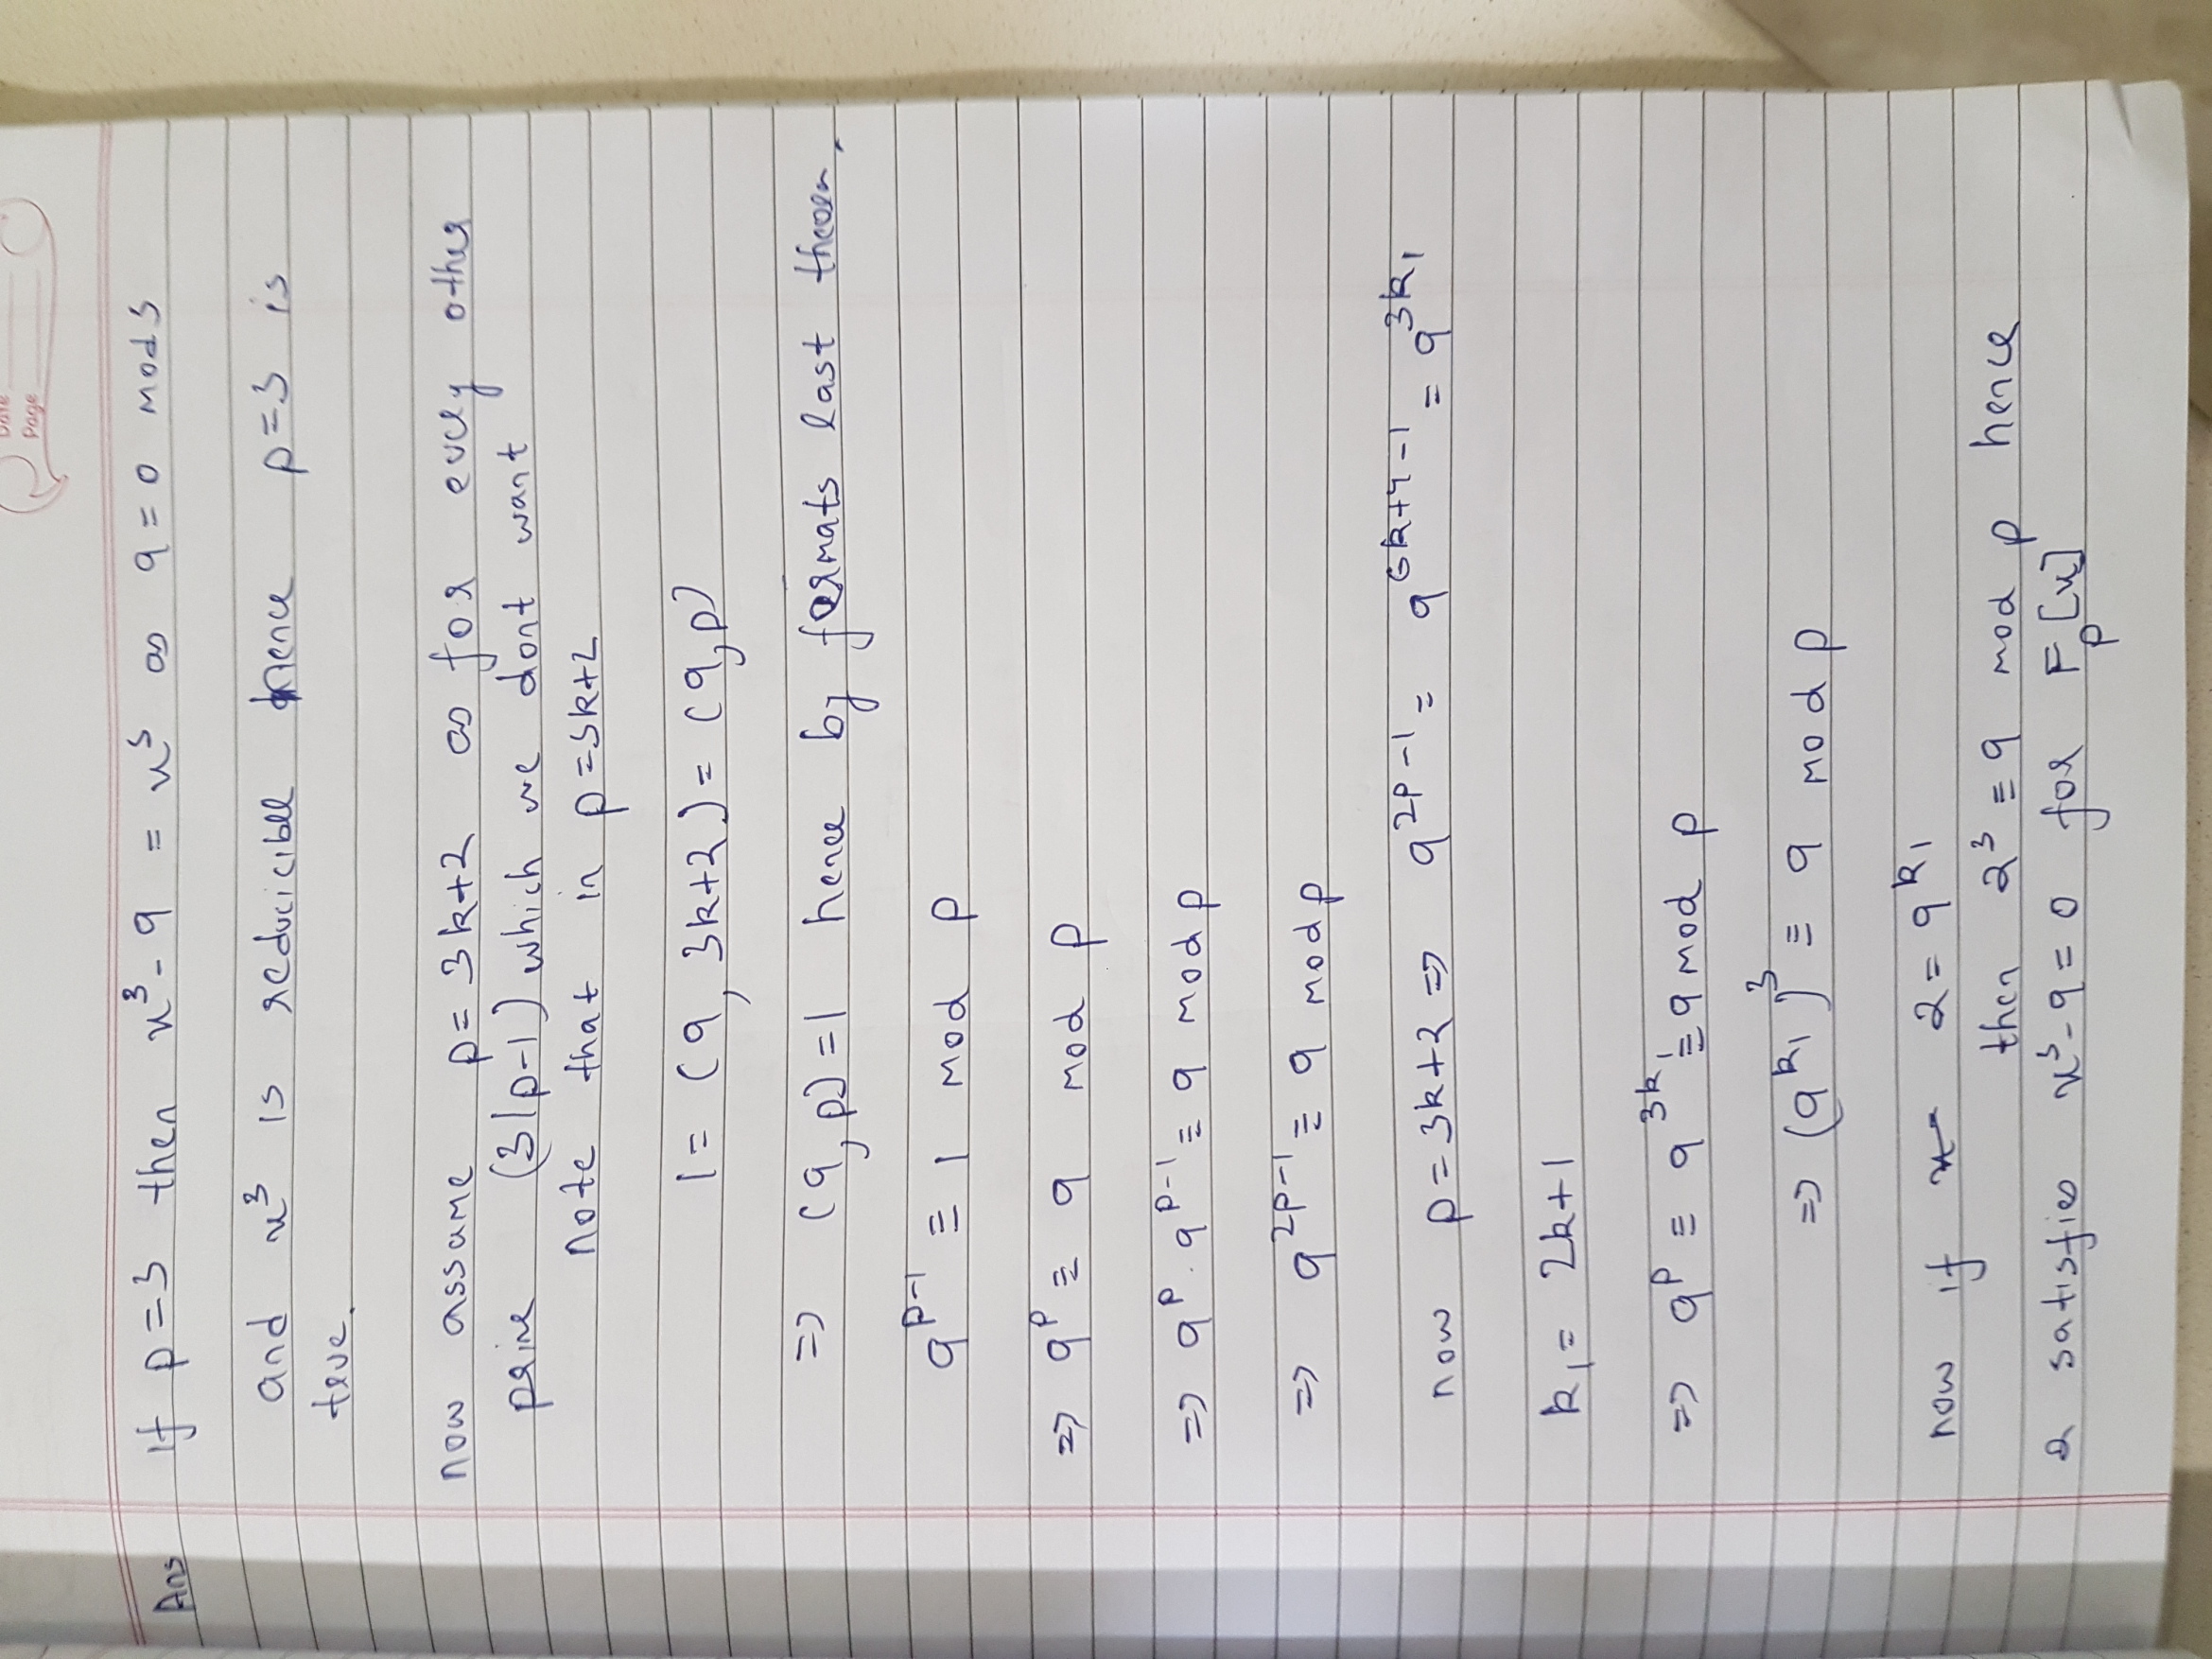 Date
Page
Ans If p=3 then x³-9 = x³ as 9=0 mod 3
and x³ is reducicible hence p=3 is
true.
now assume p= 3k+2 as for every other
prime (3|p-1) which we dont want
note that in p=3k+2
1= (9, 3k+2) = (9,p)
=> (9,p)=1 hence by fermats last theorem,
9^{p-1} ≡ 1 mod p
=> 9^p ≡ 9 mod p
=> 9^p . 9^{p-1} ≡ 9 mod p
=> 9^{2p-1} ≡ 9 mod p
now p=3k+2 => 9^{2p-1} = 9^{6k+4-1} = 9^{3k₁}
k₁= 2k+1
=> 9^p ≡ 9^{3k₁} ≡ 9 mod p
=> (9^{k₁})³ ≡ 9 mod p
now if 2= 9^{k₁}
then 2³ ≡ 9 mod p hence
2 satisfies x³-9=0 for F_p[x]